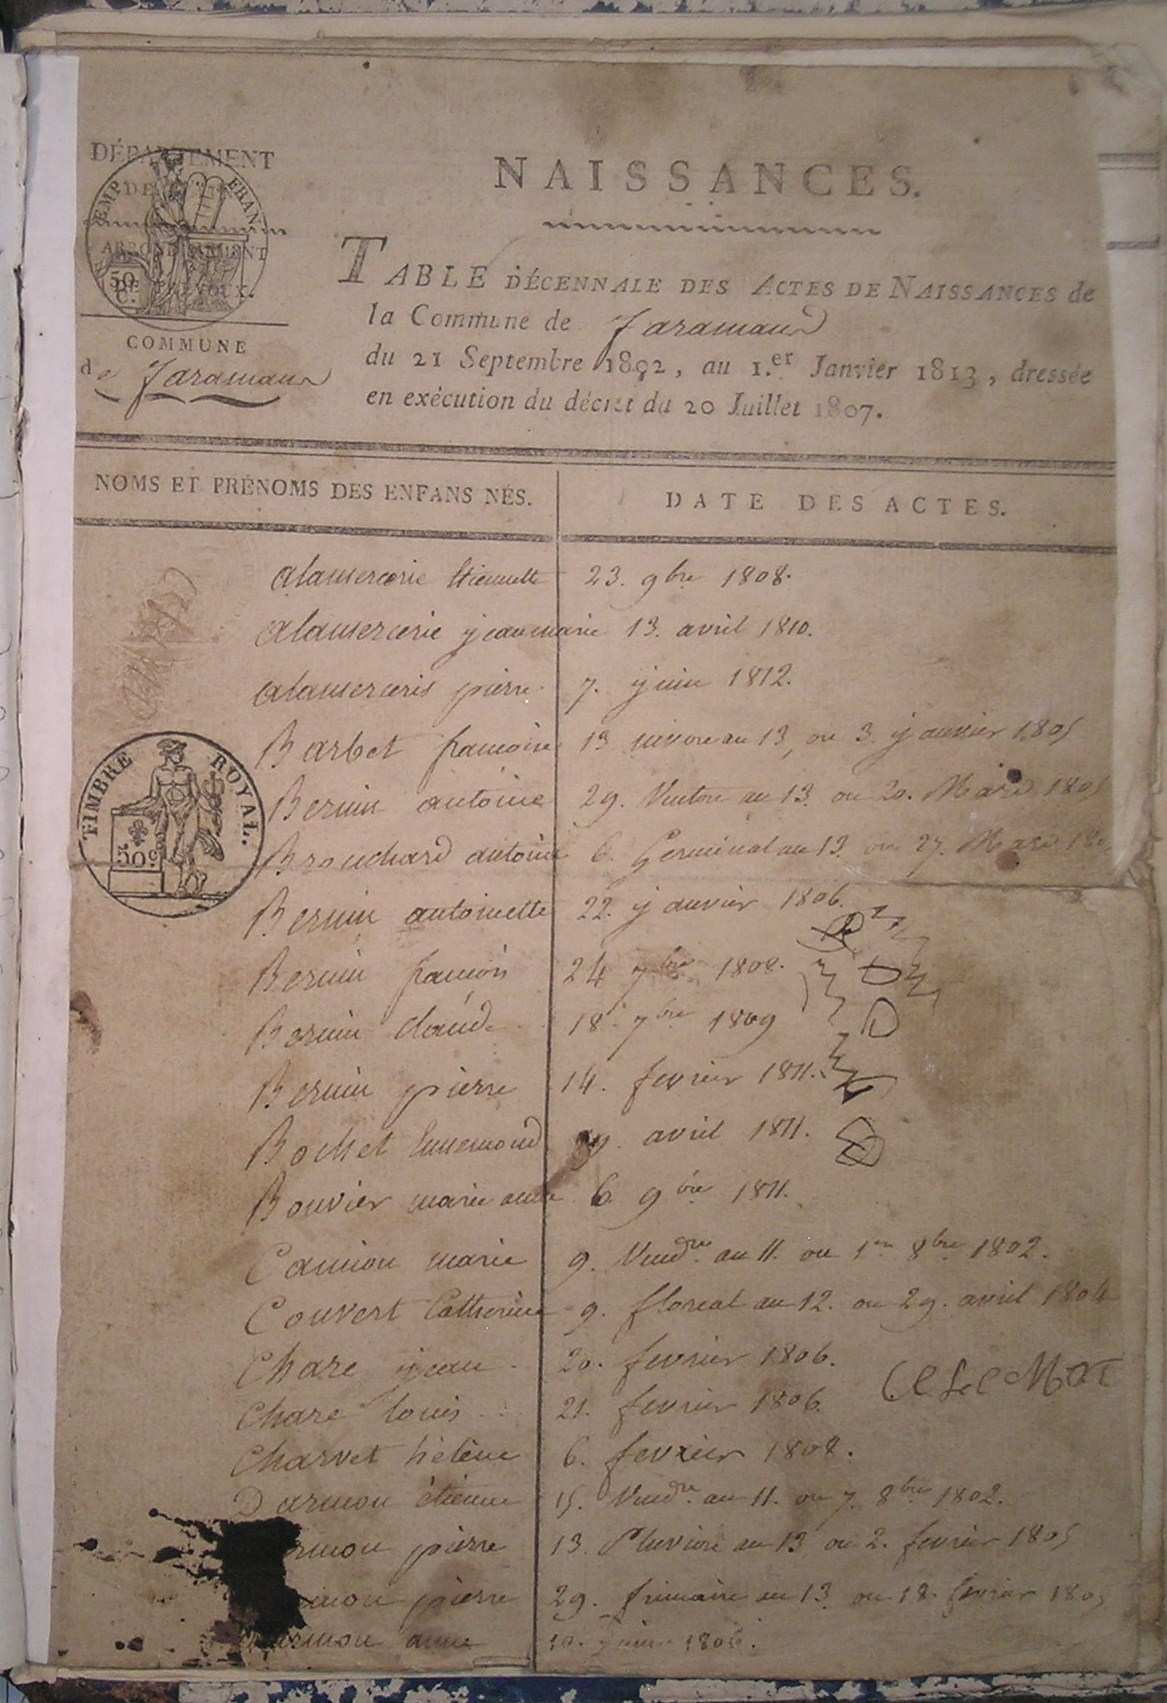 DÉPARTEMENT
DE
EMP. FRAN.
ARRONDISSEMENT
50
C.
DE TRÉVOUX.
COMMUNE
de Jaramaus
NAISSANCES.
TABLE DÉCENNALE DES ACTES DE NAISSANCES de
la Commune de Jaramaus
du 21 Septembre 1802, au 1.er Janvier 1813, dressée
en exécution du décret du 20 Juillet 1807.
NOMS ET PRÉNOMS DES ENFANS NÉS. DATE DES ACTES.
alamercerie Etiennette 23. 9bre 1808.
alamercerie jeanmarie 13. avril 1810.
alamerceris pierre 7. juin 1812.
Barbet francoise 13 nivose an 13, ou 3. janvier 1805
Bernin antoine 29. Ventose an 13. ou 20. Mars 1805
Brouchard antoine 6. Germinal an 13. ou 27. Mars 180
TIMBRE ROYAL.
50c
Bernin antoinette 22. janvier 1806.
Bernin francois 24 7bre 1808.
Bernin Claude 18. 7bre 1809
Bernin pierre 14. fevrier 1811.
Bochet Ennemond avril 1811.
Bouvier marie anne 6. 9bre 1811.
Camion marie 9. Vendre. an 11. ou 1er 8bre 1802.
Couvert Catherine 9. floreal an 12. ou 29. avril 1804
Chare jean 20. fevrier 1806.
Chare louis 21. fevrier 1806.
Charvet hélène 6. fevrier 1808.
Darmon étienne 15. Vendre. an 11. ou 7. 8bre 1802.
rmon pierre 13. Pluviose an 13 ou 2. fevrier 1805
mon pierre 29. frimaire an 13. ou 18. fevrier 1805
armon anne 10.